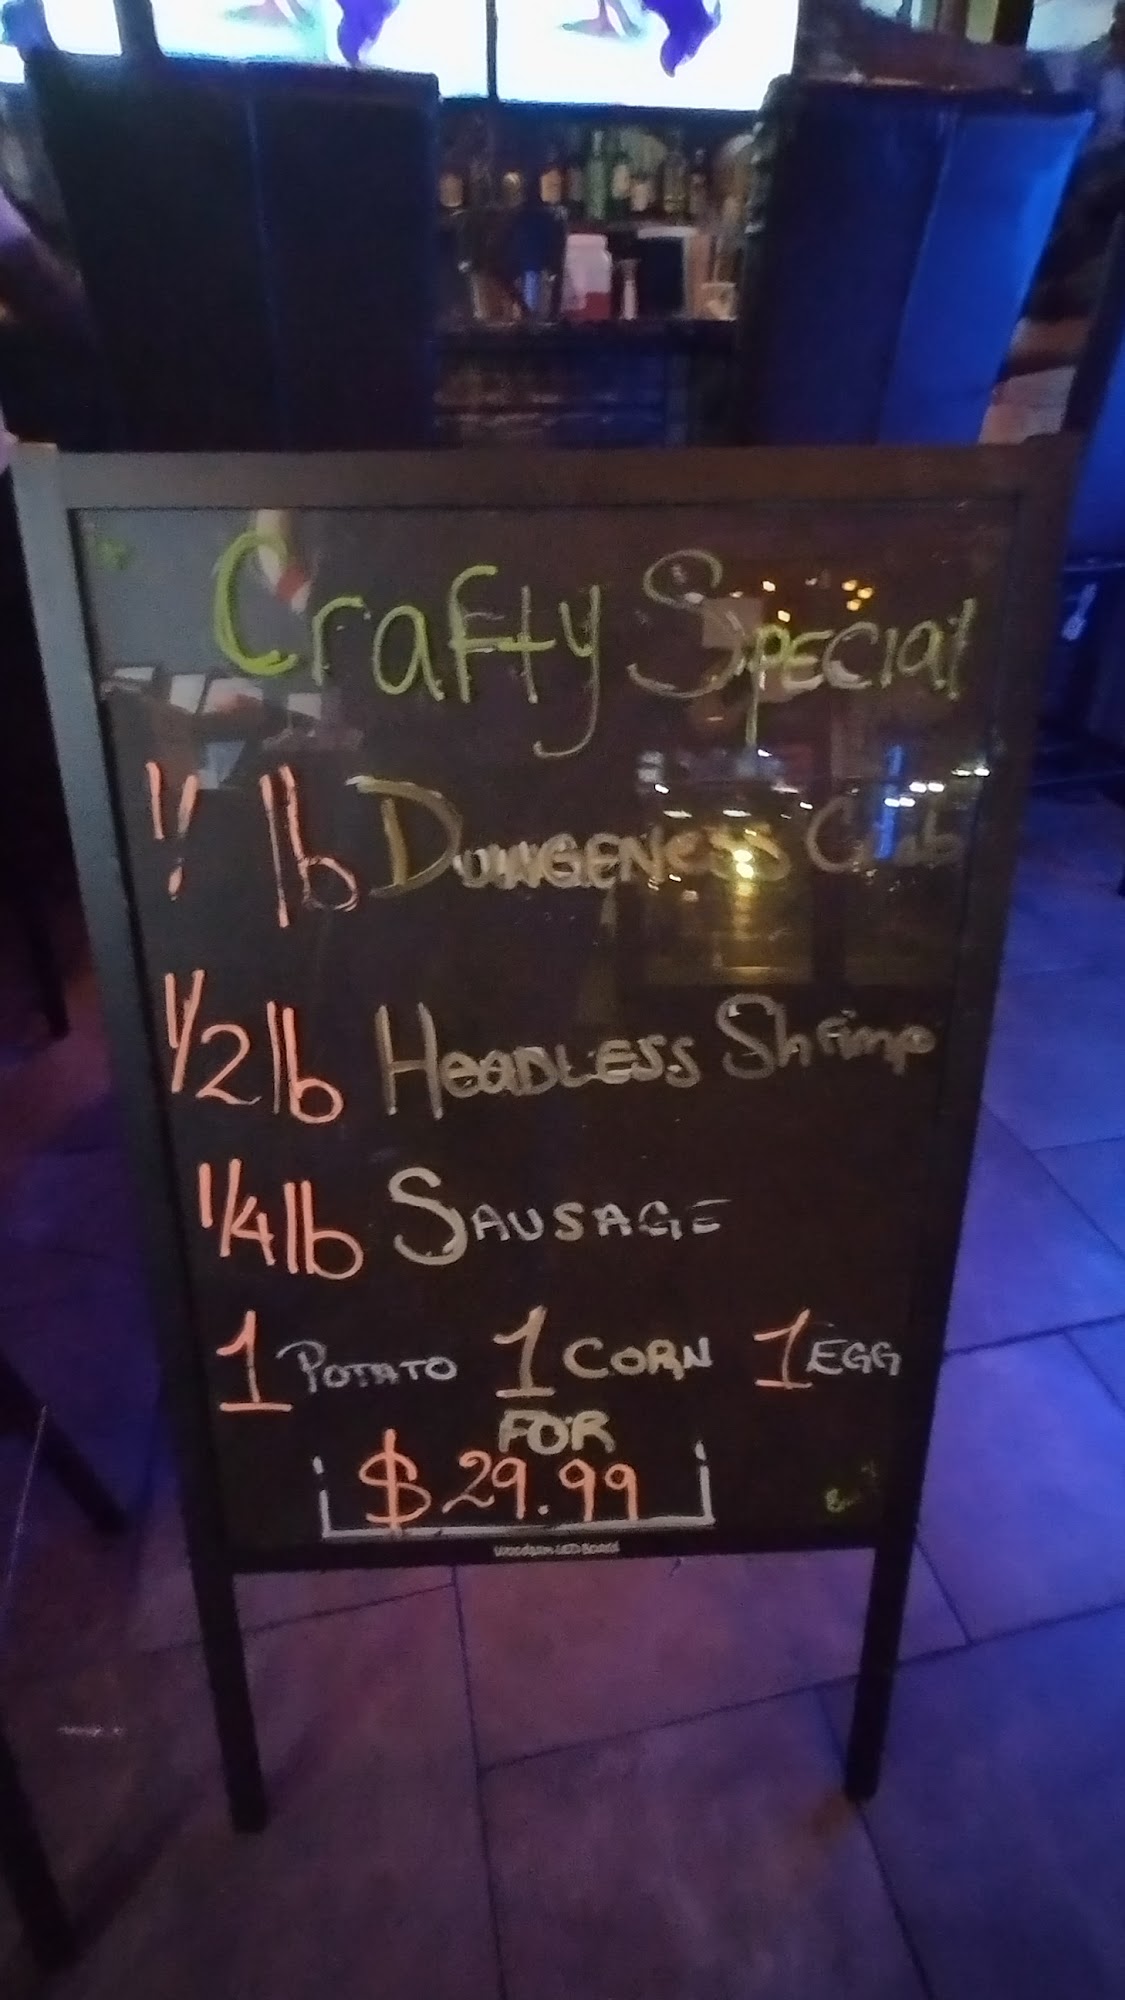 Crafty Special
lb Dungeness Crab
1/2 lb Headless Shrimp
1/4 lb Sausage
1 Potato 1 Corn 1 Egg
FOR
$29.99